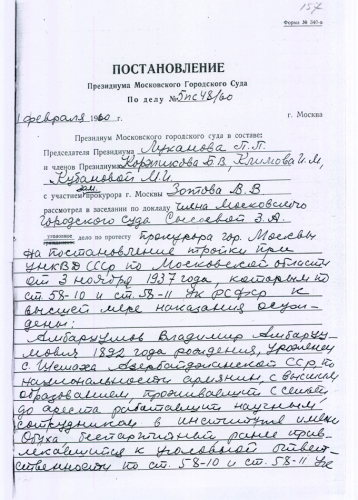 157
Форма № 340-а
ПОСТАНОВЛЕНИЕ
Президиума Московского Городского Суда
По делу № 5пс48/60
1 февраля 1960 г. г. Москва
Президиум Московского городского суда в составе:
Председателя Президиума Луканова П.П.
и членов Президиума Коржикова Б В, Климова И.М,
Кубановой М.И.
зам.
с участием прокурора г. Москвы Зотова В.В
рассмотрел в заседании по докладу члена Московского
Городского Суда З.А.
уголовное
дело по протесту прокурора гор. Москвы
на постановление тройки при
УНКВД СССР по Московской области
от 3 ноября 1937 года, которым по
ст. 58-10 и ст. 58-11 УК РСФСР к
высшей мере наказания осуж-
дены:
Амбарцумов Владимир Амбарцу-
мович 1892 года рождения, уроженец
с. Шемаха Азербайджанской ССР, по
национальности армянин, с высшим
образованием, проживавший с семьей
до ареста работавший научным
сотрудником в институте имени
Обуха беспартийный ранее прив-
лекавшийся к уголовной ответ-
ственности по ст. 58-10 и ст. 58-11 УК